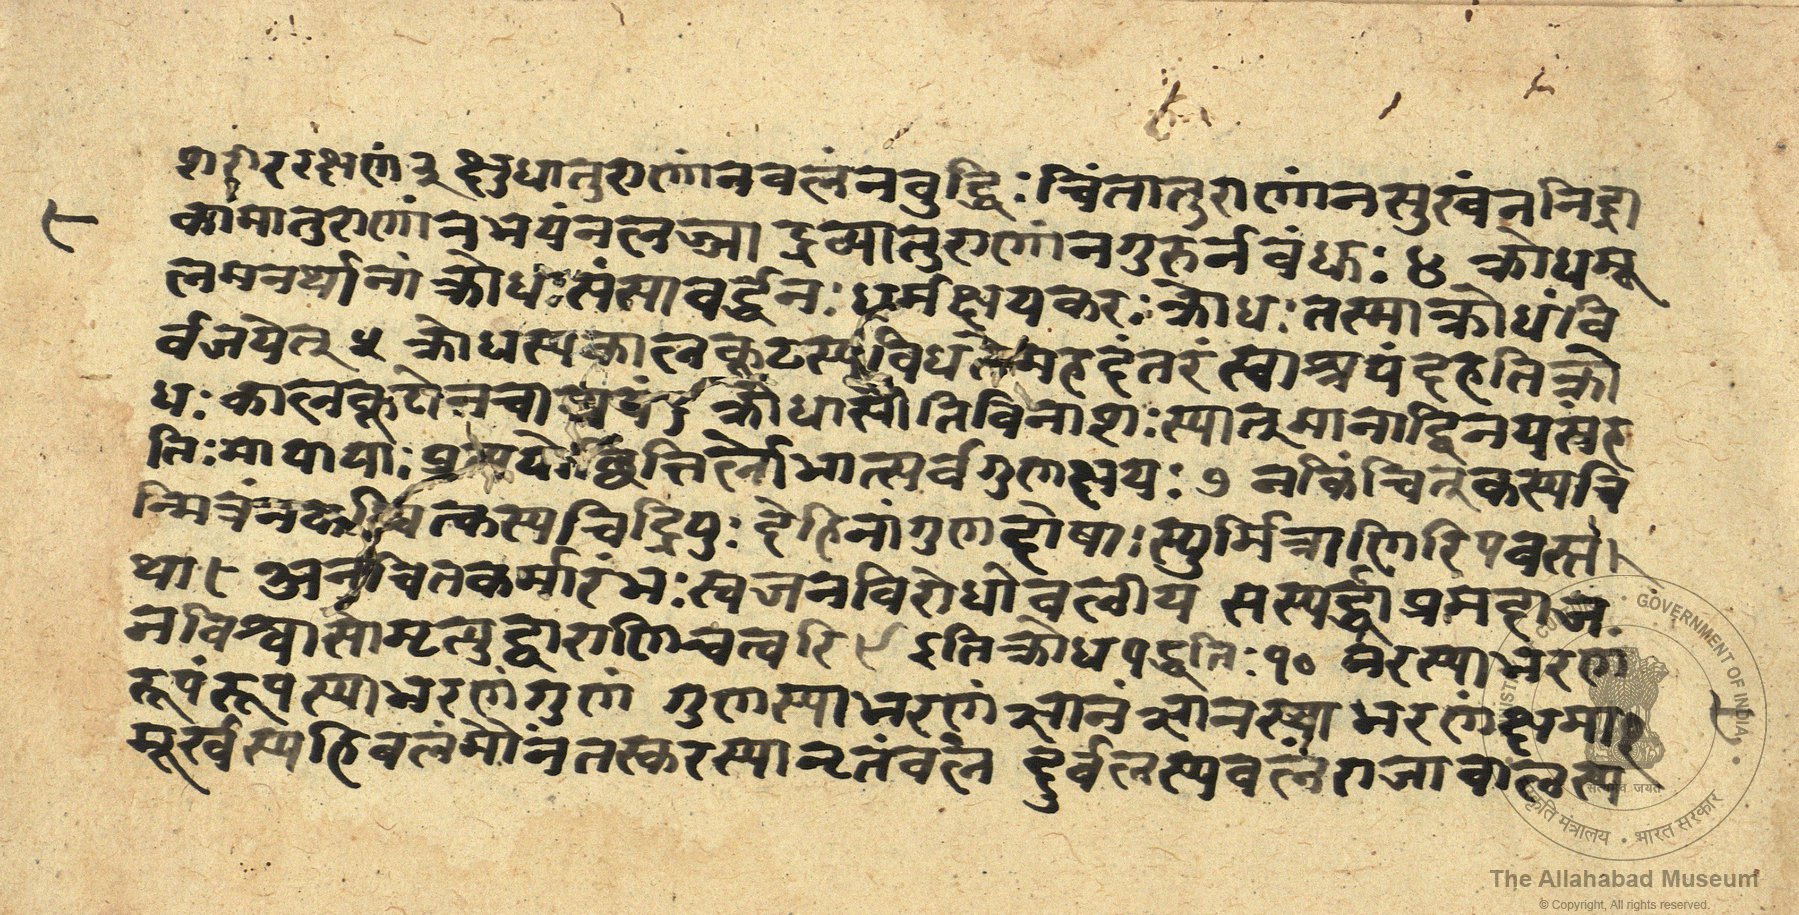 शरीररक्षणं ३ क्षुधातुराणां न वलं न वुद्धि: चिंतातुराणां न सुखं न निद्रा
कामातुराणां न भयं न लज्जा द्रव्यातुराणां न गुरुर्न वंधु: ४ क्रोधमू
लमनर्थानां क्रोध: संसावर्द्धन: धर्मक्षयकर: क्रोध: तस्माक्रोधं वि
र्वजयेत् ५ क्रोधस्य कालकूटस्य विध महदंतरं स्वाश्रयं दहति क्रो
ध: कालकूटो न चाश्रयं ६ क्रोधात्प्रीतिविनाश: स्यात् मानाद्विनयसंह
ति: मायाया: लोभात्सर्वगुणक्षय: ७ न किंचित् कस्यचि
न्मित्रं न कस्यचिद्रिपु: देहिनां गुणदोषा: स्युर्मित्राणि रिपवस्त
था ८ अनुचितकर्मारंभ: स्वजनविरोधो वलीय सस्पर्द्धा प्रमदाज
नविश्वासो मृत्युद्वाराणि चत्वरि ९ इति क्रोधपद्धति: १० नरस्याभरणं
रूपं रूपस्याभरणं गुणं गुणस्याभरणं ज्ञानं ज्ञानस्याभरणं क्षमा १
मूर्खस्य हि वलं मौनं तस्करस्यानृतं वलं दुर्वलस्य वलं राजा वालस्य
९
९
GOVERNMENT OF INDIA
संस्कृति मंत्रालय • भारत सरकार
सत्यमेव जयते
The Allahabad Museum
© Copyright, All rights reserved.